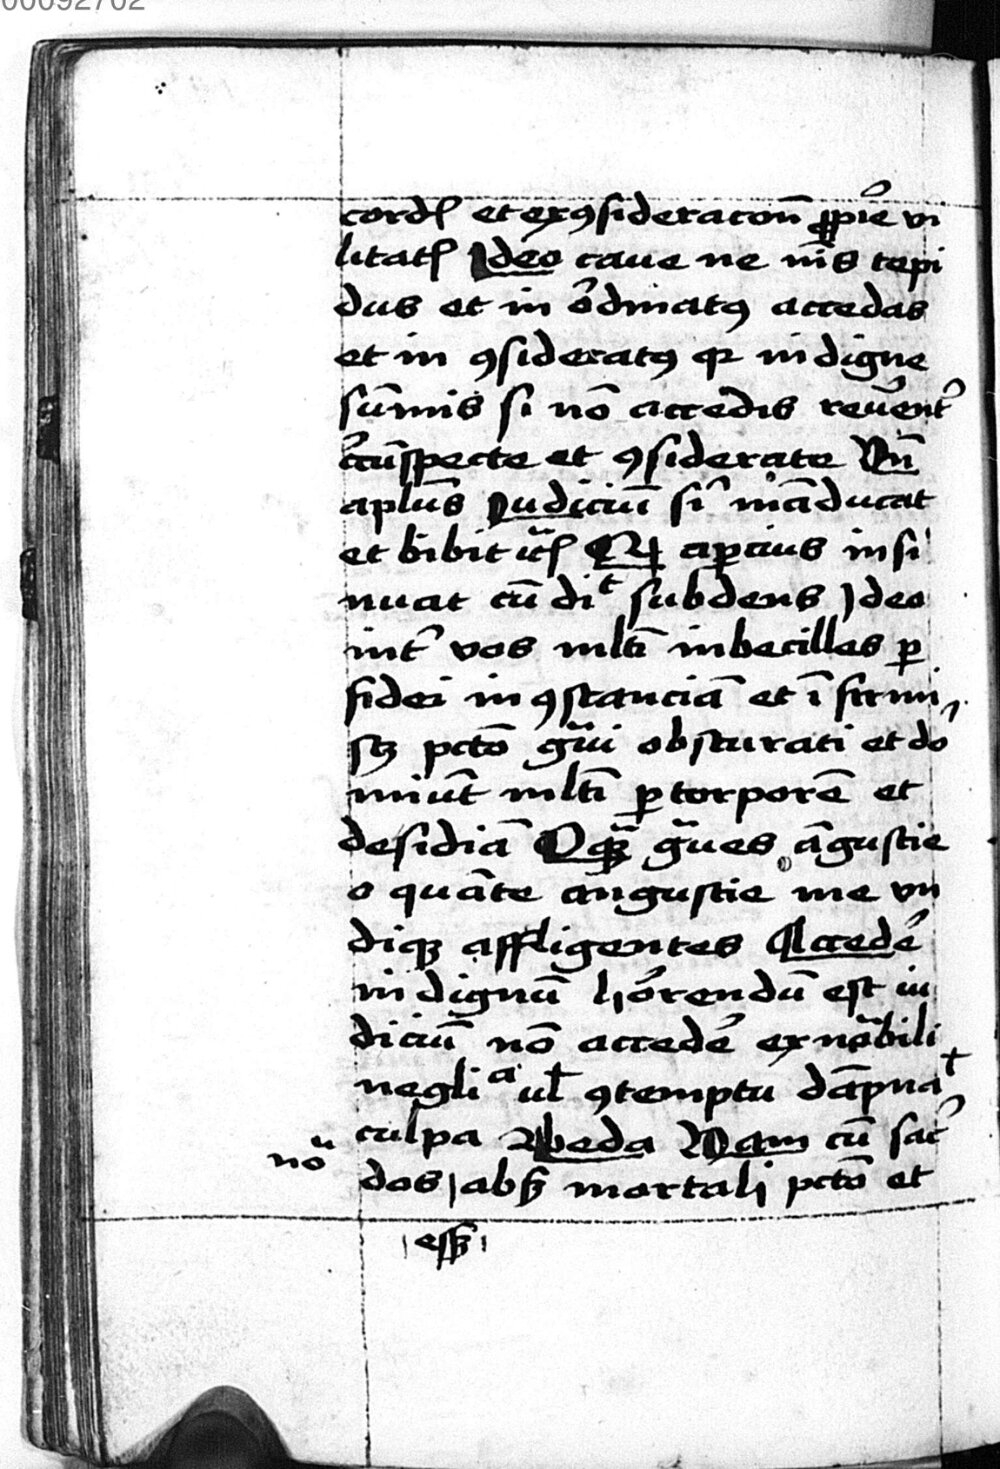 00092702
cordꝭ et ex ꝯsideracōn ꝓpͥe vi
litatꝭ Ideo caue ne nīs tepi
dus et in ōdinatꝰ accedas
et in ꝯsideratꝰ qꝛ in digne
sūmis si nō accedis reūent᷒
ccūspecte et ꝯsiderate Vn̄
apl̄us Iudiciū si᷒ māducat
et bibit ꝛc̄ꝭ Qꝫ apcius in si
nuat cū diͭ subdens Ideo
int᷒ vos ml̄ti inbecilles ꝑ
fidei in ꝯstanciā et ī firmi
sꝫ pctō gͣui obscurati et do᷒
miūt ml̄ti ꝑ torporē et
desidiā O qͣꝫ gͣues āgustie
o quāte angustie me vn
diqꝫ affligentes Accedē
in dignū horrendū est iu
diciū nō accedē ex nōbili
negliᵃ ul̄ ꝯtemptu dāpnaͭ
culpa Beda Nam cū sac᷒
dos absꝫ mortali pctō et
noᵘ
essꝫ